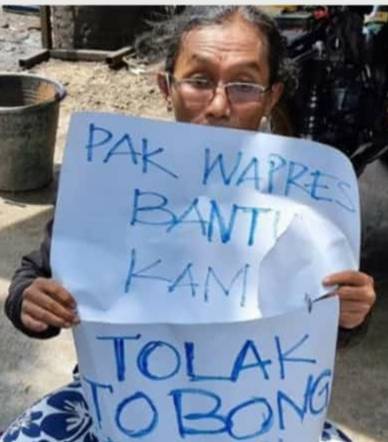 PAK WAPRES
BANTU
KAM
TOLAK
TOBONG